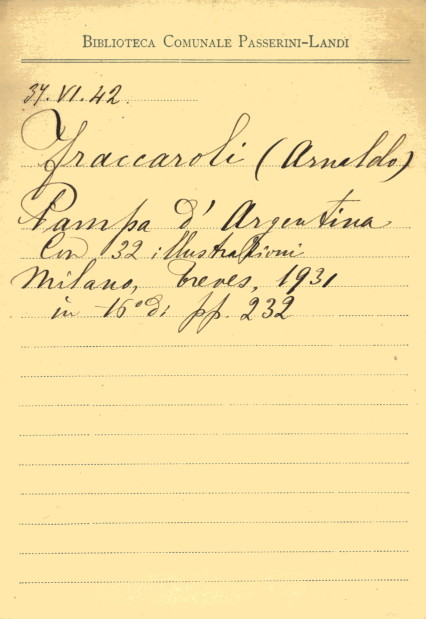 BIBLIOTECA COMUNALE PASSERINI-LANDI
34.VI.42.
Fraccaroli (Arnaldo)
Pampa d'Argentina
Con 32 illustrazioni
Milano, Treves, 1931
in 16° di pp. 232